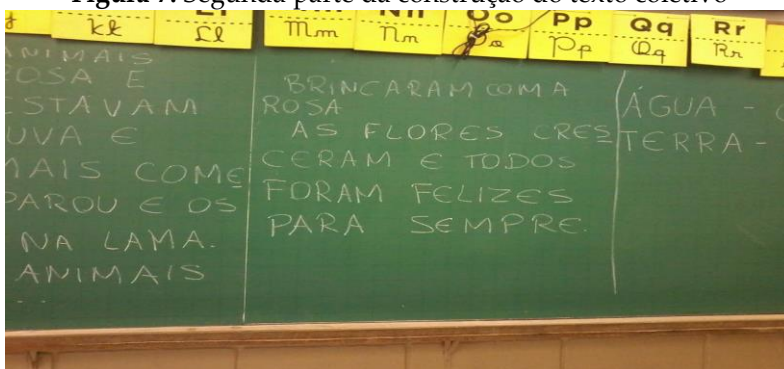 Figura 7. Segunda parte da construção do texto coletivo
kk Ll Mm Nn Oo Pp Qq Rr
Mm Nn Pp Qq Rr
ANIMAIS
ROSA E
ESTAVAM
UVA E
MAIS COME
PAROU E OS
NA LAMA.
ANIMAIS
...
BRINCARAM COM A
ROSA
AS FLORES CRES
CERAM E TODOS
FORAM FELIZES
PARA SEMPRE.
ÁGUA -
TERRA -